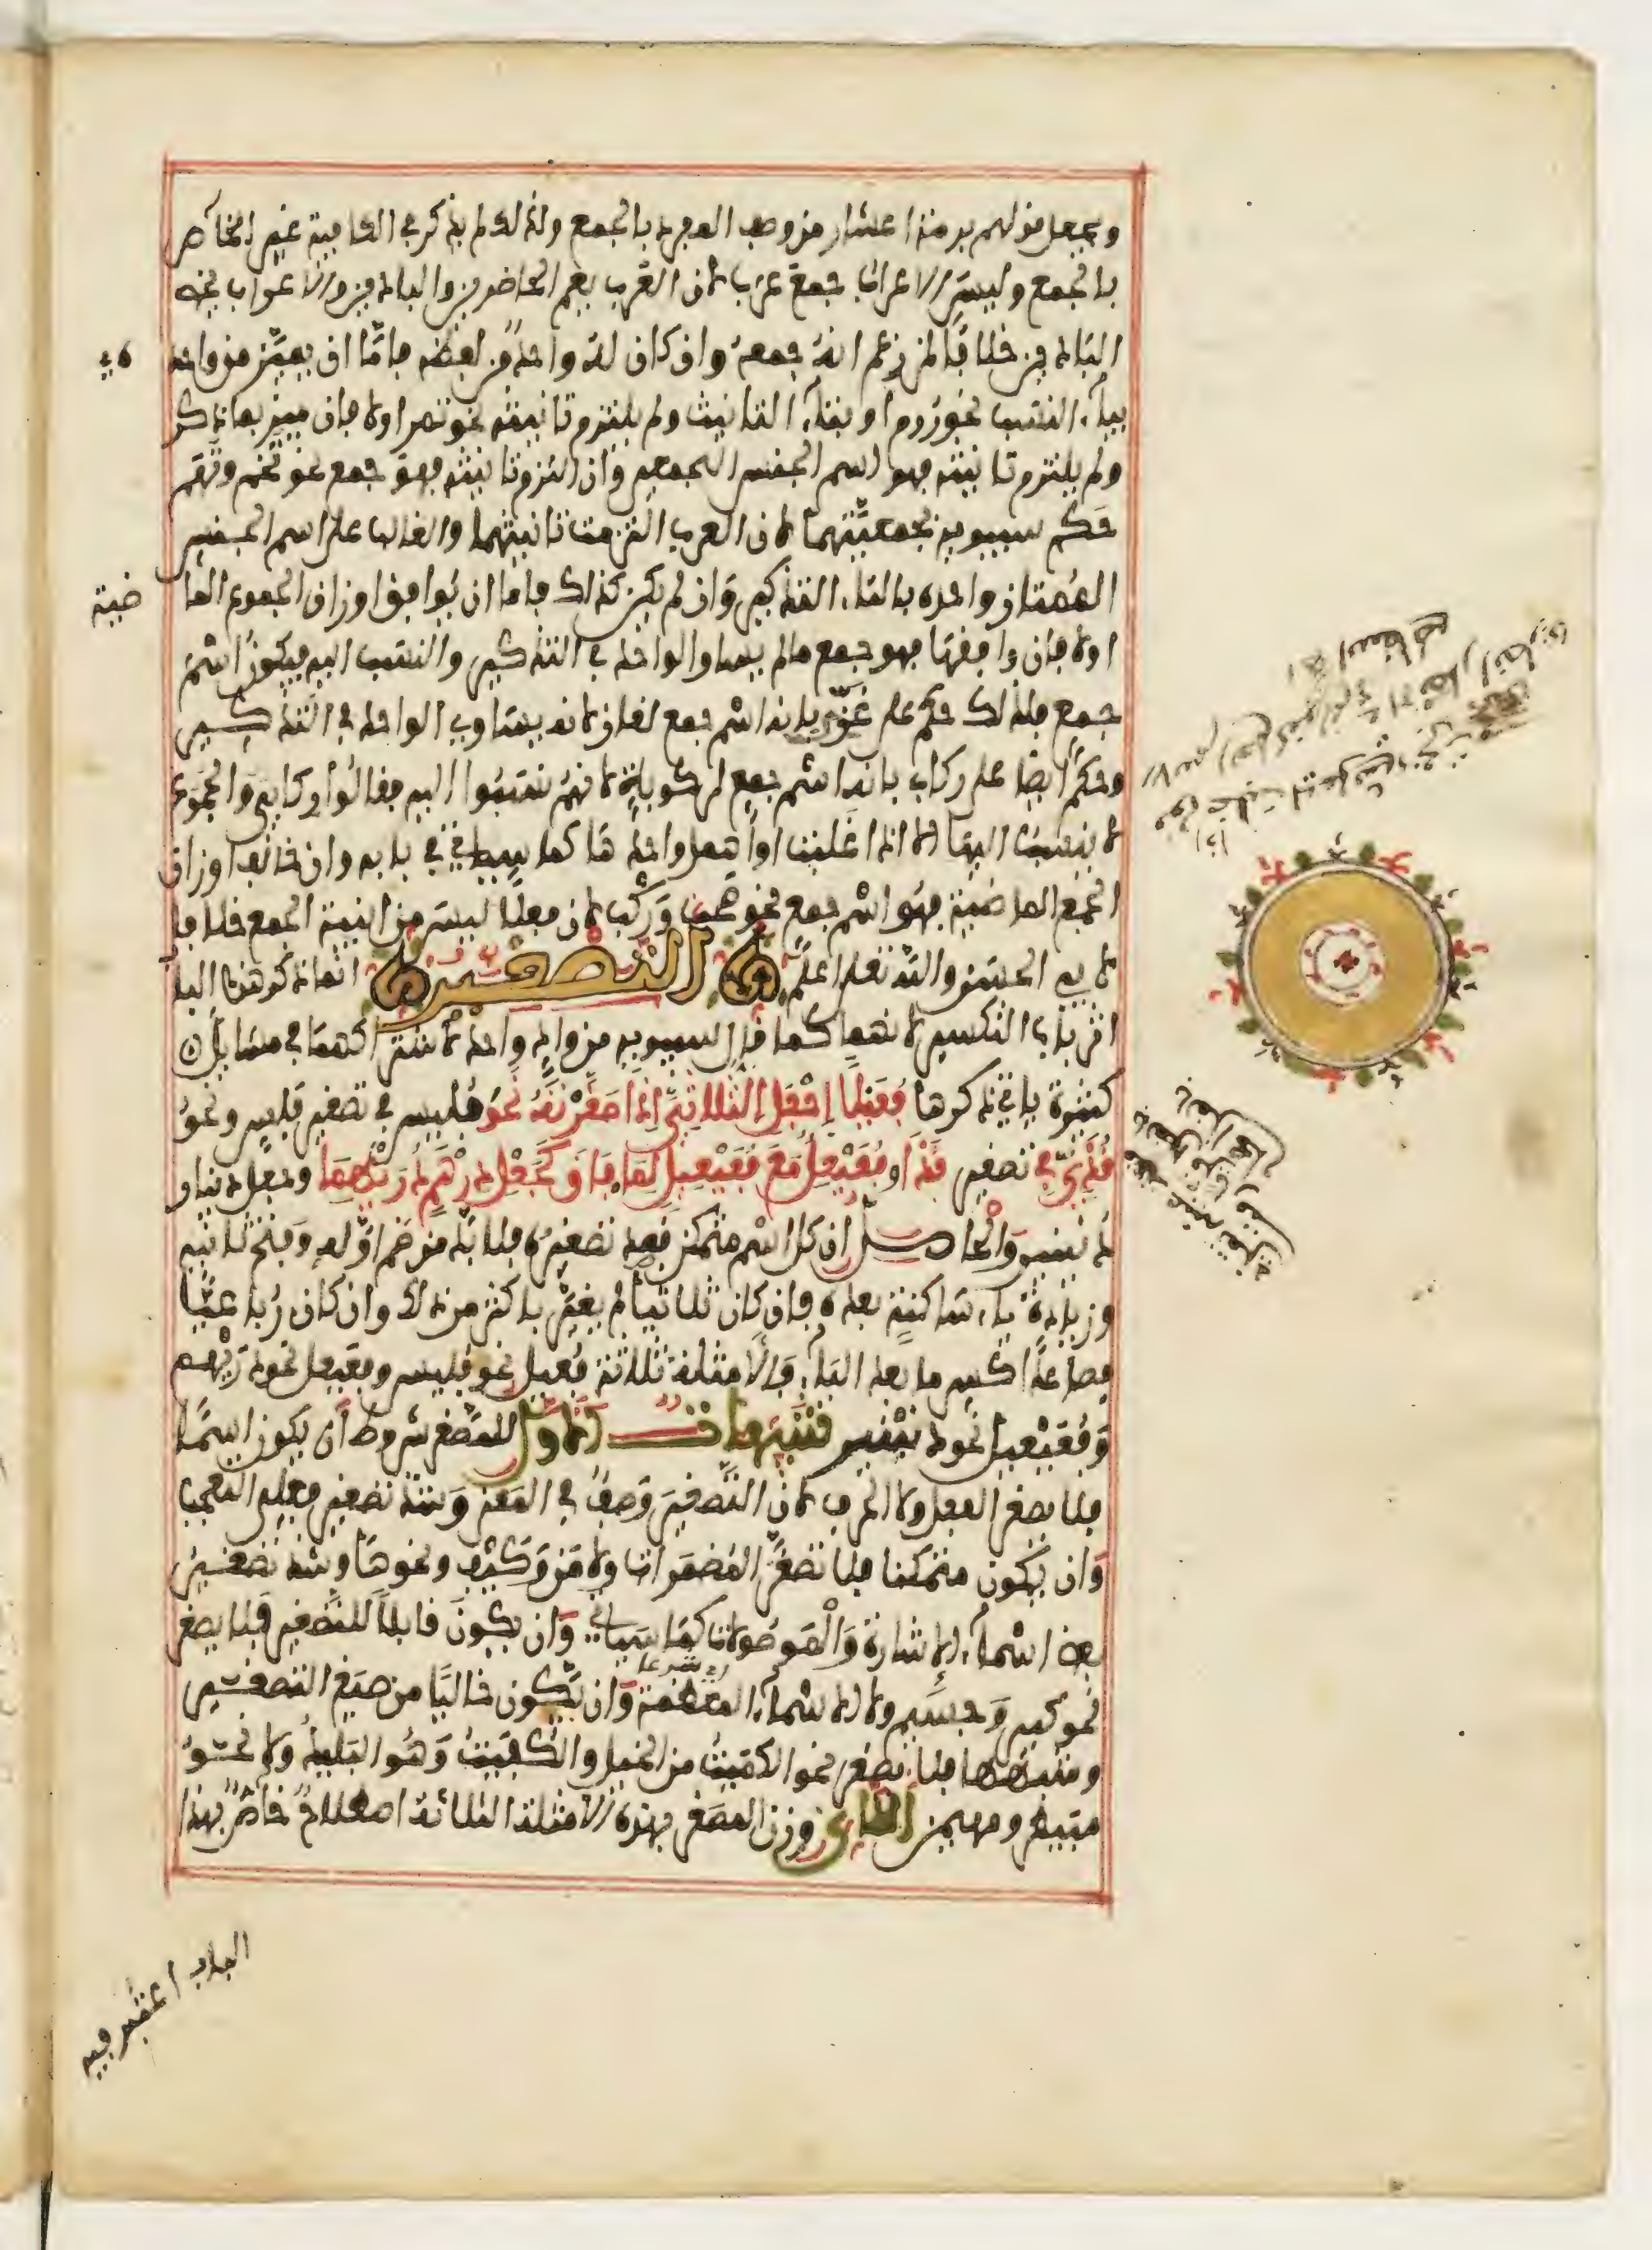 ويجعل قولهم برمة اعشار من وصف المفرد بالجمع ولذلك لم يذكر في الكافية غير الخاص
بالجمع وليس الاعراب جمع عرب لان العرب يعم الحاضرين والبادين والاعراب يخص
البادين خلافا لمن زعم انه جمعه وان كان له واحد من لفظه فاما ان يميز من واحده
بياء النسب نحو روم او بتاء التانيث ولم يلتزم تانيثه نحو تمر اولا فان ميز بما ذكر
ولم يلتزم تانيثه فهو اسم الجنس الجمعي وان التزم تانيثه فهو جمع نحو تخم وتهم
حكم سيبويه بجمعيتهما لان العرب التزمت تانيثهما والغالب على اسم الجنس
الممتاز واحده بالتاء التذكير وان لم يكن كذلك فاما ان يوافق اوزان الجموع الما
ضية
اولا فان وافقها فهو جمع ما لم يساو الواحد في التذكير والنسب اليه فيكون اسم
جمع فلذلك حكم على غزي بانه اسم جمع لغاز لانه يساوي الواحد في التذكير
وحكم ايضا على ركاب بانه اسم جمع لركوبة لانهم نسبوا اليه فقالوا ركابي والجموع
لا ينسب اليها الا اذا غلبت او اهمل واحدها كما سياتي في بابه وان خالف اوزان
الجمع الماضية فهو اسم جمع نحو صحب وركب لان فعلا ليس من ابنية الجمع خلافا
لابي الحسن والله تعلى اعلم التصغير انما ذكر هذا البا
اثر باب التكسير لانهما كما قال سيبويه من واد واحد لاشتراكهما في مسايل
كثيرة ياتي ذكرها فعيلا اجعل الثلاثي اذا صغرته نحو فليس في تصغير فلس ونحو
قذي في تصغير قذا وفعيعل مع فعيعيل لما فاق كجعل درهم دريهما وجعل دينار
دنينير والحاصل ان كل اسم متمكن قصد تصغيره فلا بد من ضم اوله وفتح ثانيه
وزيادة ياء ساكنة بعده فان كان ثلاثيا لم يغير باكثر من ذلك وان كان رباعيا
فصاعدا كسر ما بعد الياء فالامثلة ثلاثة فعيل نحو فليس وفعيعل نحو دريهم
وفعيعيل نحو دنينير تنبيهات الاول للمصغر شروط ان يكون اسما
فلا يصغر الفعل ولا الحرف لان التصغير وصف في المعنى وشذ تصغير فعل التعجب
وان يكون متمكنا فلا تصغر المضمرات ولا من وكيف ونحوها وشذ تصغير
بعض اسماء الاشارة والموصولات كما سياتي وان يكون قابلا للتصغير فلا يصغر
نحو كبير وجسيم ولا الاسماء المعظمة وان يكون خاليا من صيغ التصغير
شرعا
وشبهها فلا يصغر نحو الكميت من الخيل والكعيت وهو البلبل ولا نحو
مبيطر ومهيمن الثاني وزن المصغر بهذه الامثلة الثلاثة اصطلاح خاص بهذا
الباب اعتبر فيه